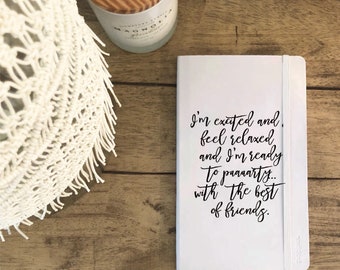 MAGNOLIA
I'm excited and
feel relaxed
and I'm ready
to paaaarty..
with the best
of friends.